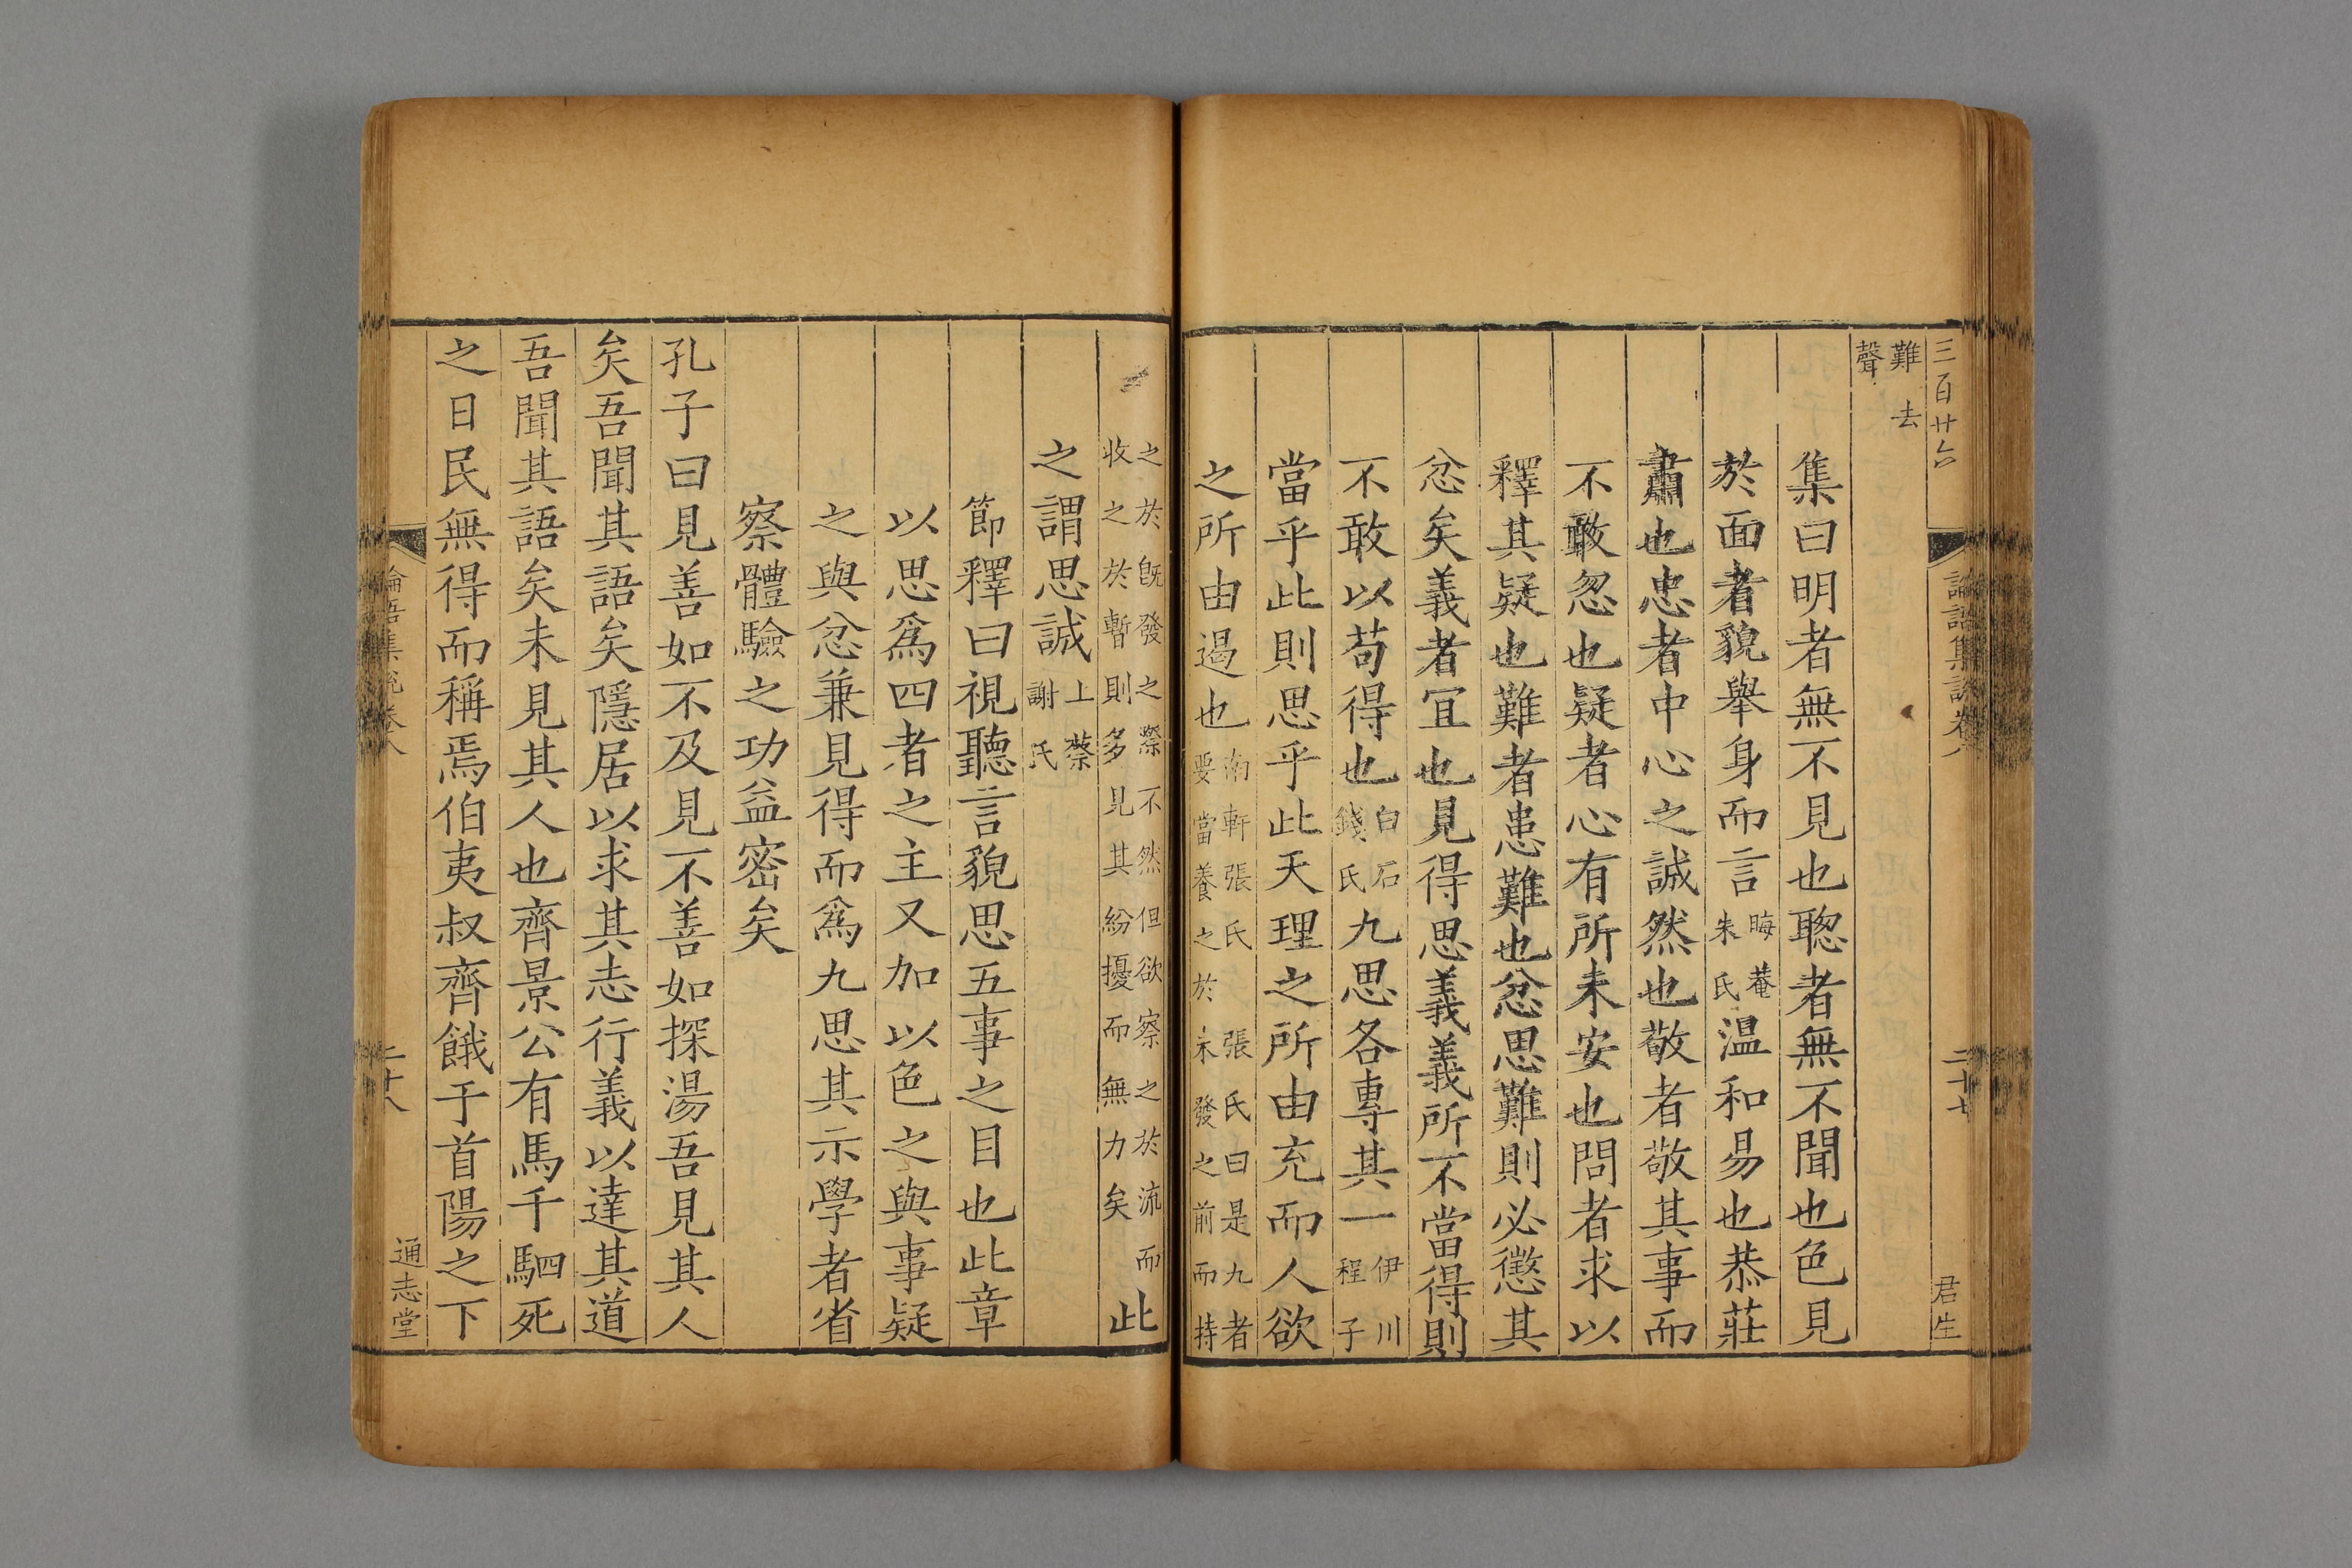 三百廿六
論語集說卷八
二十七
君生
難去
聲
集曰明者無不見也聦者無不聞也色見
於面者貌舉身而言晦菴朱氏温和易也恭莊
肅也忠者中心之誠然也敬者敬其事而
不敢忽也疑者心有所未安也問者求以
釋其疑也難者患難也忿思難則必懲其
忿矣義者冝也見得思義義所不當得則
不敢以苟得也白石錢氏九思各專其一伊川程子
當乎此則思乎此天理之所由充而人欲
之所由遏也南軒張氏 張氏曰是九者要當養之於未發之前而持
之於旣發之際不然但欲察之於流而收之於暫則多見其紛擾而無力矣此
之謂思誠上蔡謝氏
節釋曰視聽言貌思五事之目也此章
以思爲四者之主又加以色之與事疑
之與忿兼見得而爲九思其示學者省
察體驗之功益密矣
孔子曰見善如不及見不善如探湯吾見其人
矣吾聞其語矣隱居以求其志行義以達其道
吾聞其語矣未見其人也齊景公有馬千駟死
之日民無得而稱焉伯夷叔齊餓于首陽之下
論語集說卷八
二十八
通志堂